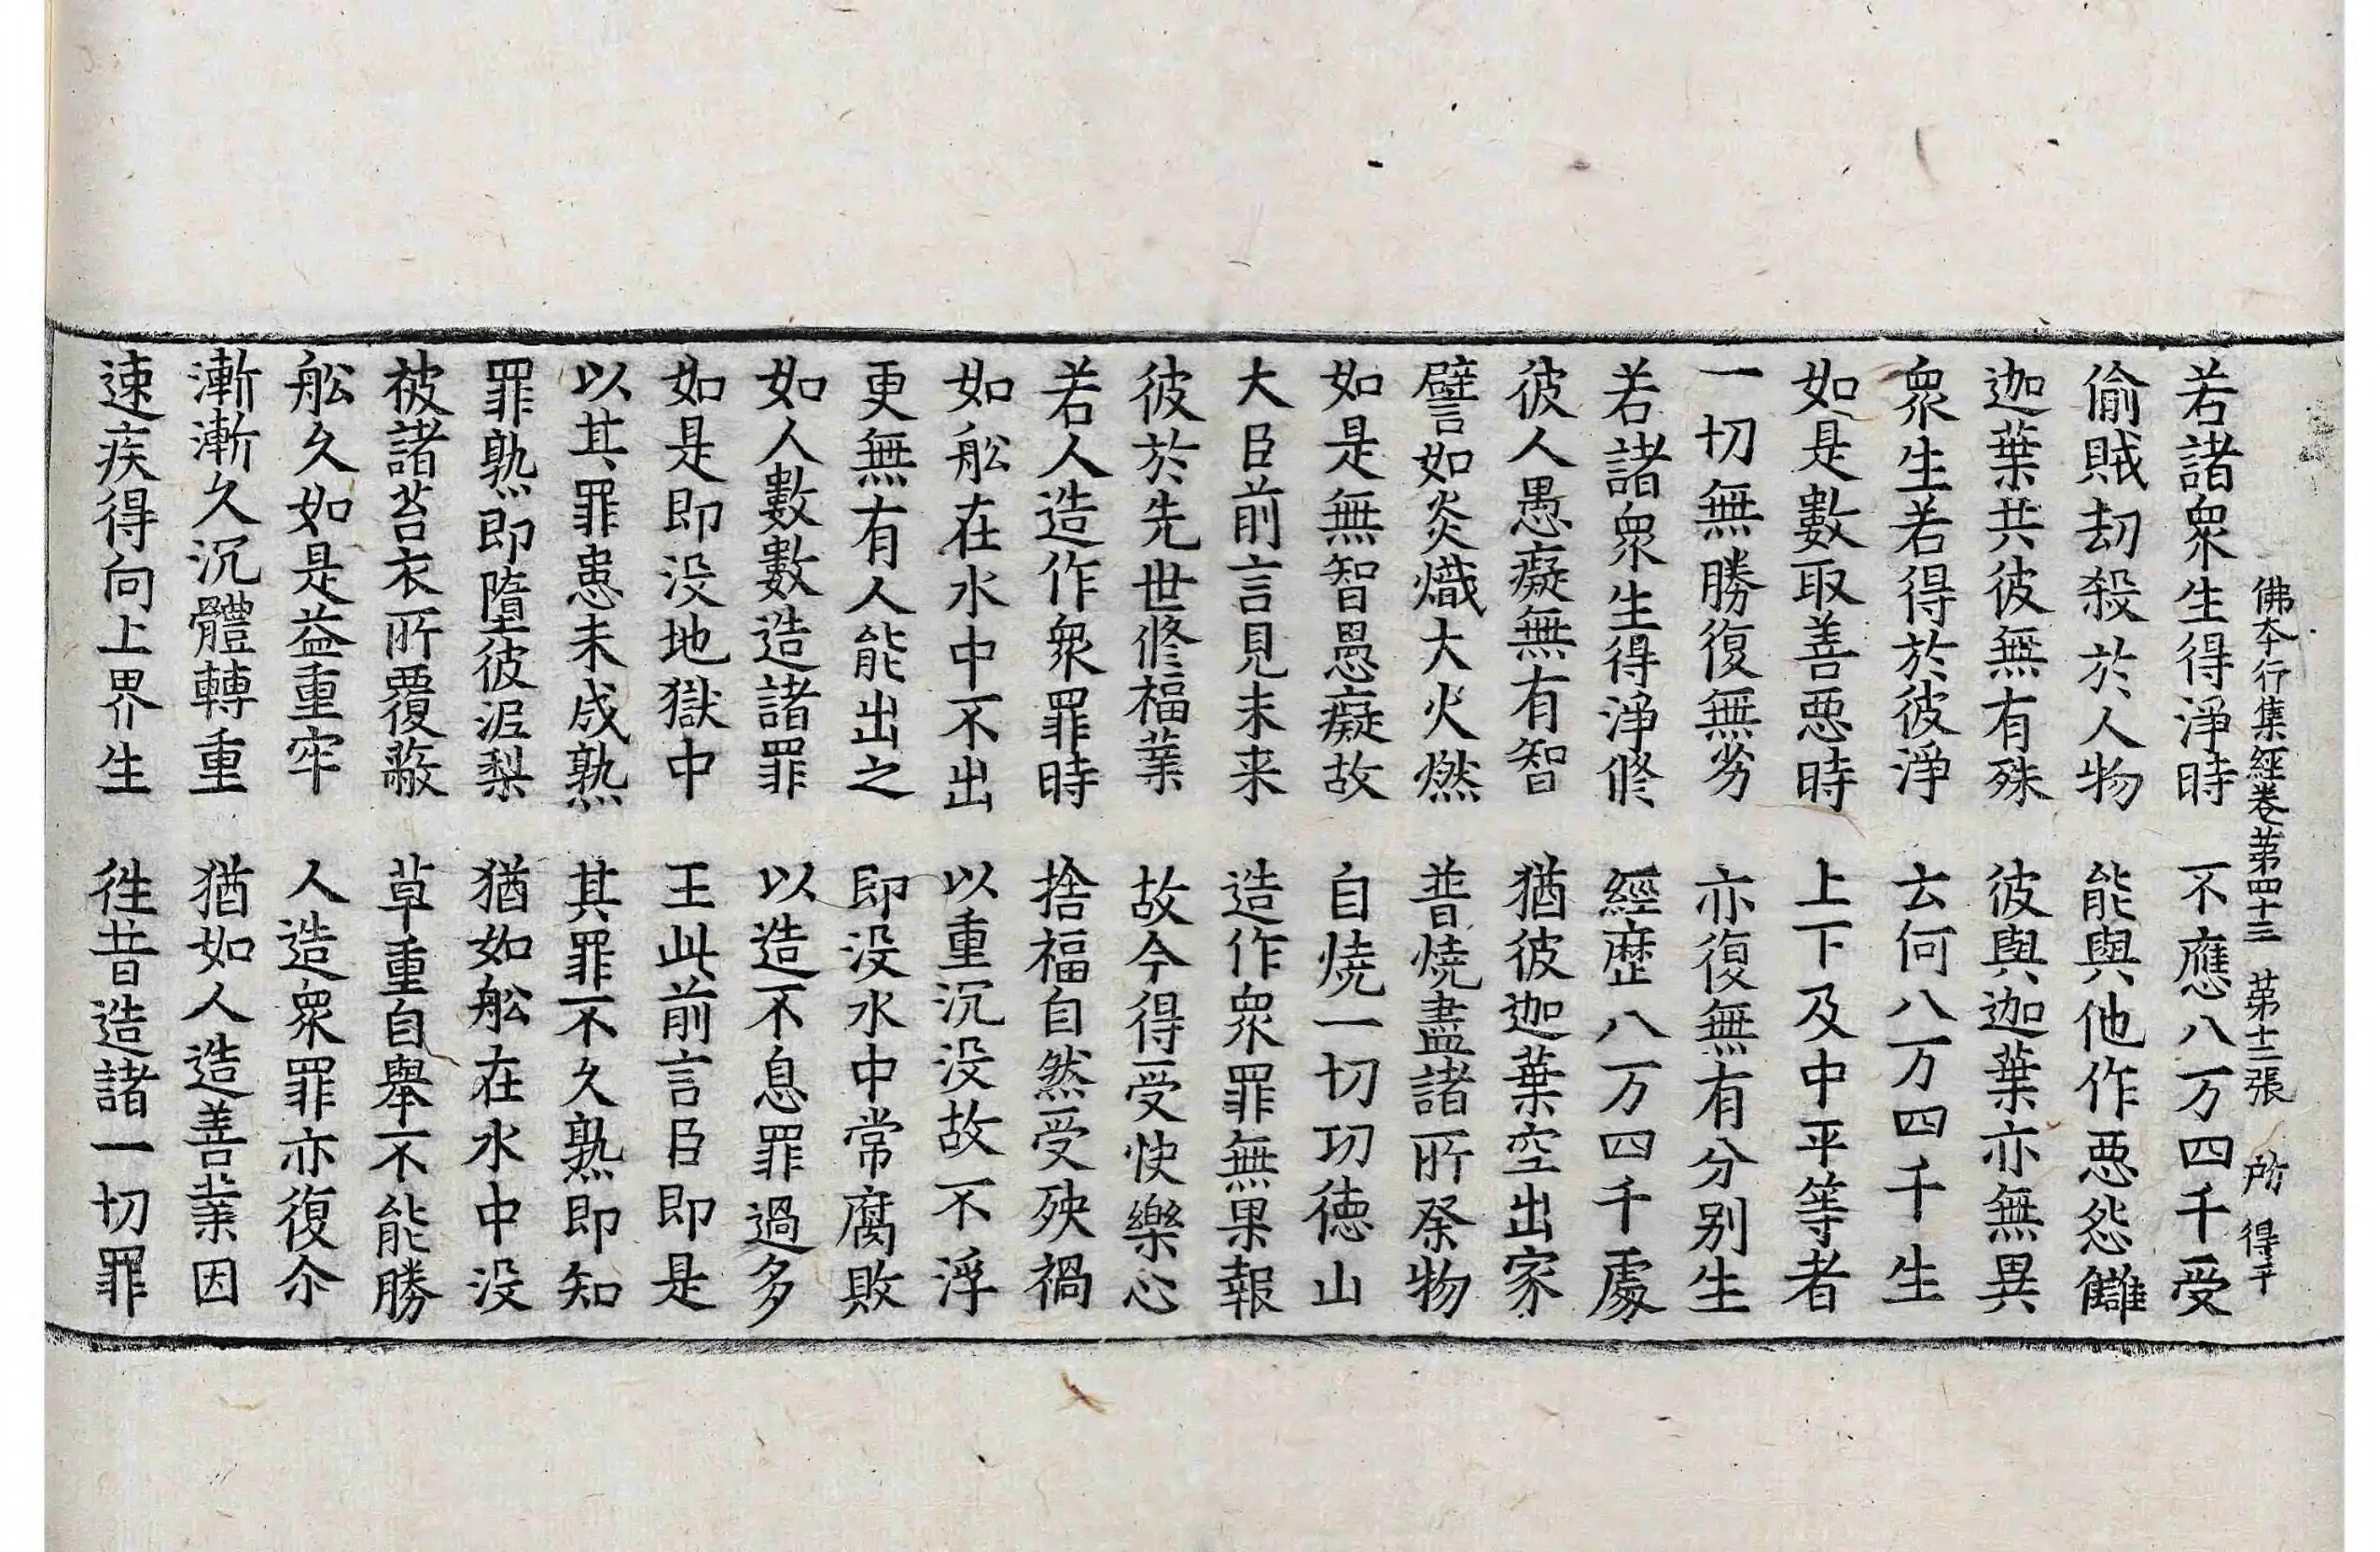 佛本行集經卷第四十三　第十二張　所　得平
若諸衆生得淨時　不應八万四千受
偷賊劫殺於人物　能與他作惡怨讎
迦葉共彼無有殊　彼與迦葉亦無異
衆生若得於彼淨　云何八万四千生
如是數取善惡時　上下及中平等者
一切無勝復無劣　亦復無有分别生
若諸衆生得淨修　經歷八万四千處
彼人愚癡無有智　猶彼迦葉空出家
譬如炎熾大火燃　普燒盡諸所祭物
如是無智愚癡故　自燒一切功德山
大臣前言見未来　造作衆罪無果報
彼於先世修福業　故今得受快樂心
若人造作衆罪時　捨福自然受殃禍
如舩在水中不出　以重沉没故不浮
更無有人能出之　即没水中常腐敗
如人數數造諸罪　以造不息罪過多
如是即没地獄中　王此前言臣即是
以其罪患未成熟　其罪不久熟即知
罪熟即墮彼泥梨　猶如舩在水中没
被諸苔衣所覆蔽　草重自舉不能勝
舩久如是益重牢　人造衆罪亦復尒
漸漸久沉體轉重　猶如人造善業因
速疾得向上界生　徃昔造諸一切罪